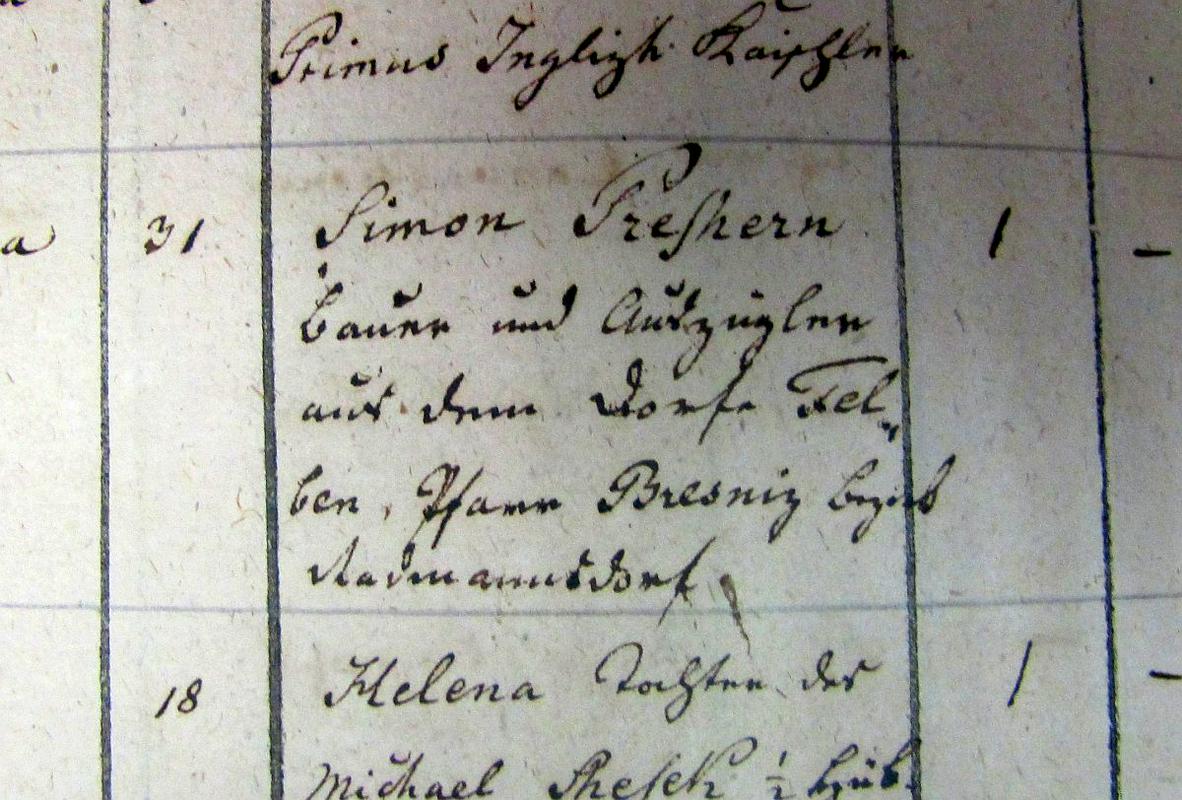 Primus Inglizh Kaischler
a 31 Simon Preshern 1 –
Bauer und Auszügler
aus dem Dorfe Fel„
ben, Pfarr Bresniz Bezirk
Radmannsdorf
18 Helena Tochter des 1 –
Michael Shesek ½ Hüb„